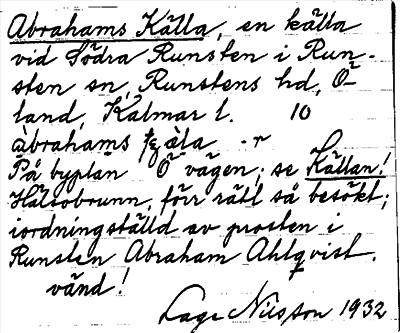 Abrahams Källa, en källa
vid Södra Runsten i Run-
sten sn, Runstens hd, Ö
land, Kalmar l. 10
àbrahàms ala -r
På byplan Ö vägen; se Källan!
Hälsobrunn, förr rätt så besökt;
iordningställd av prosten i
Runsten Abraham Ahlqvist.
vänd!
Lage Nilsson 1932